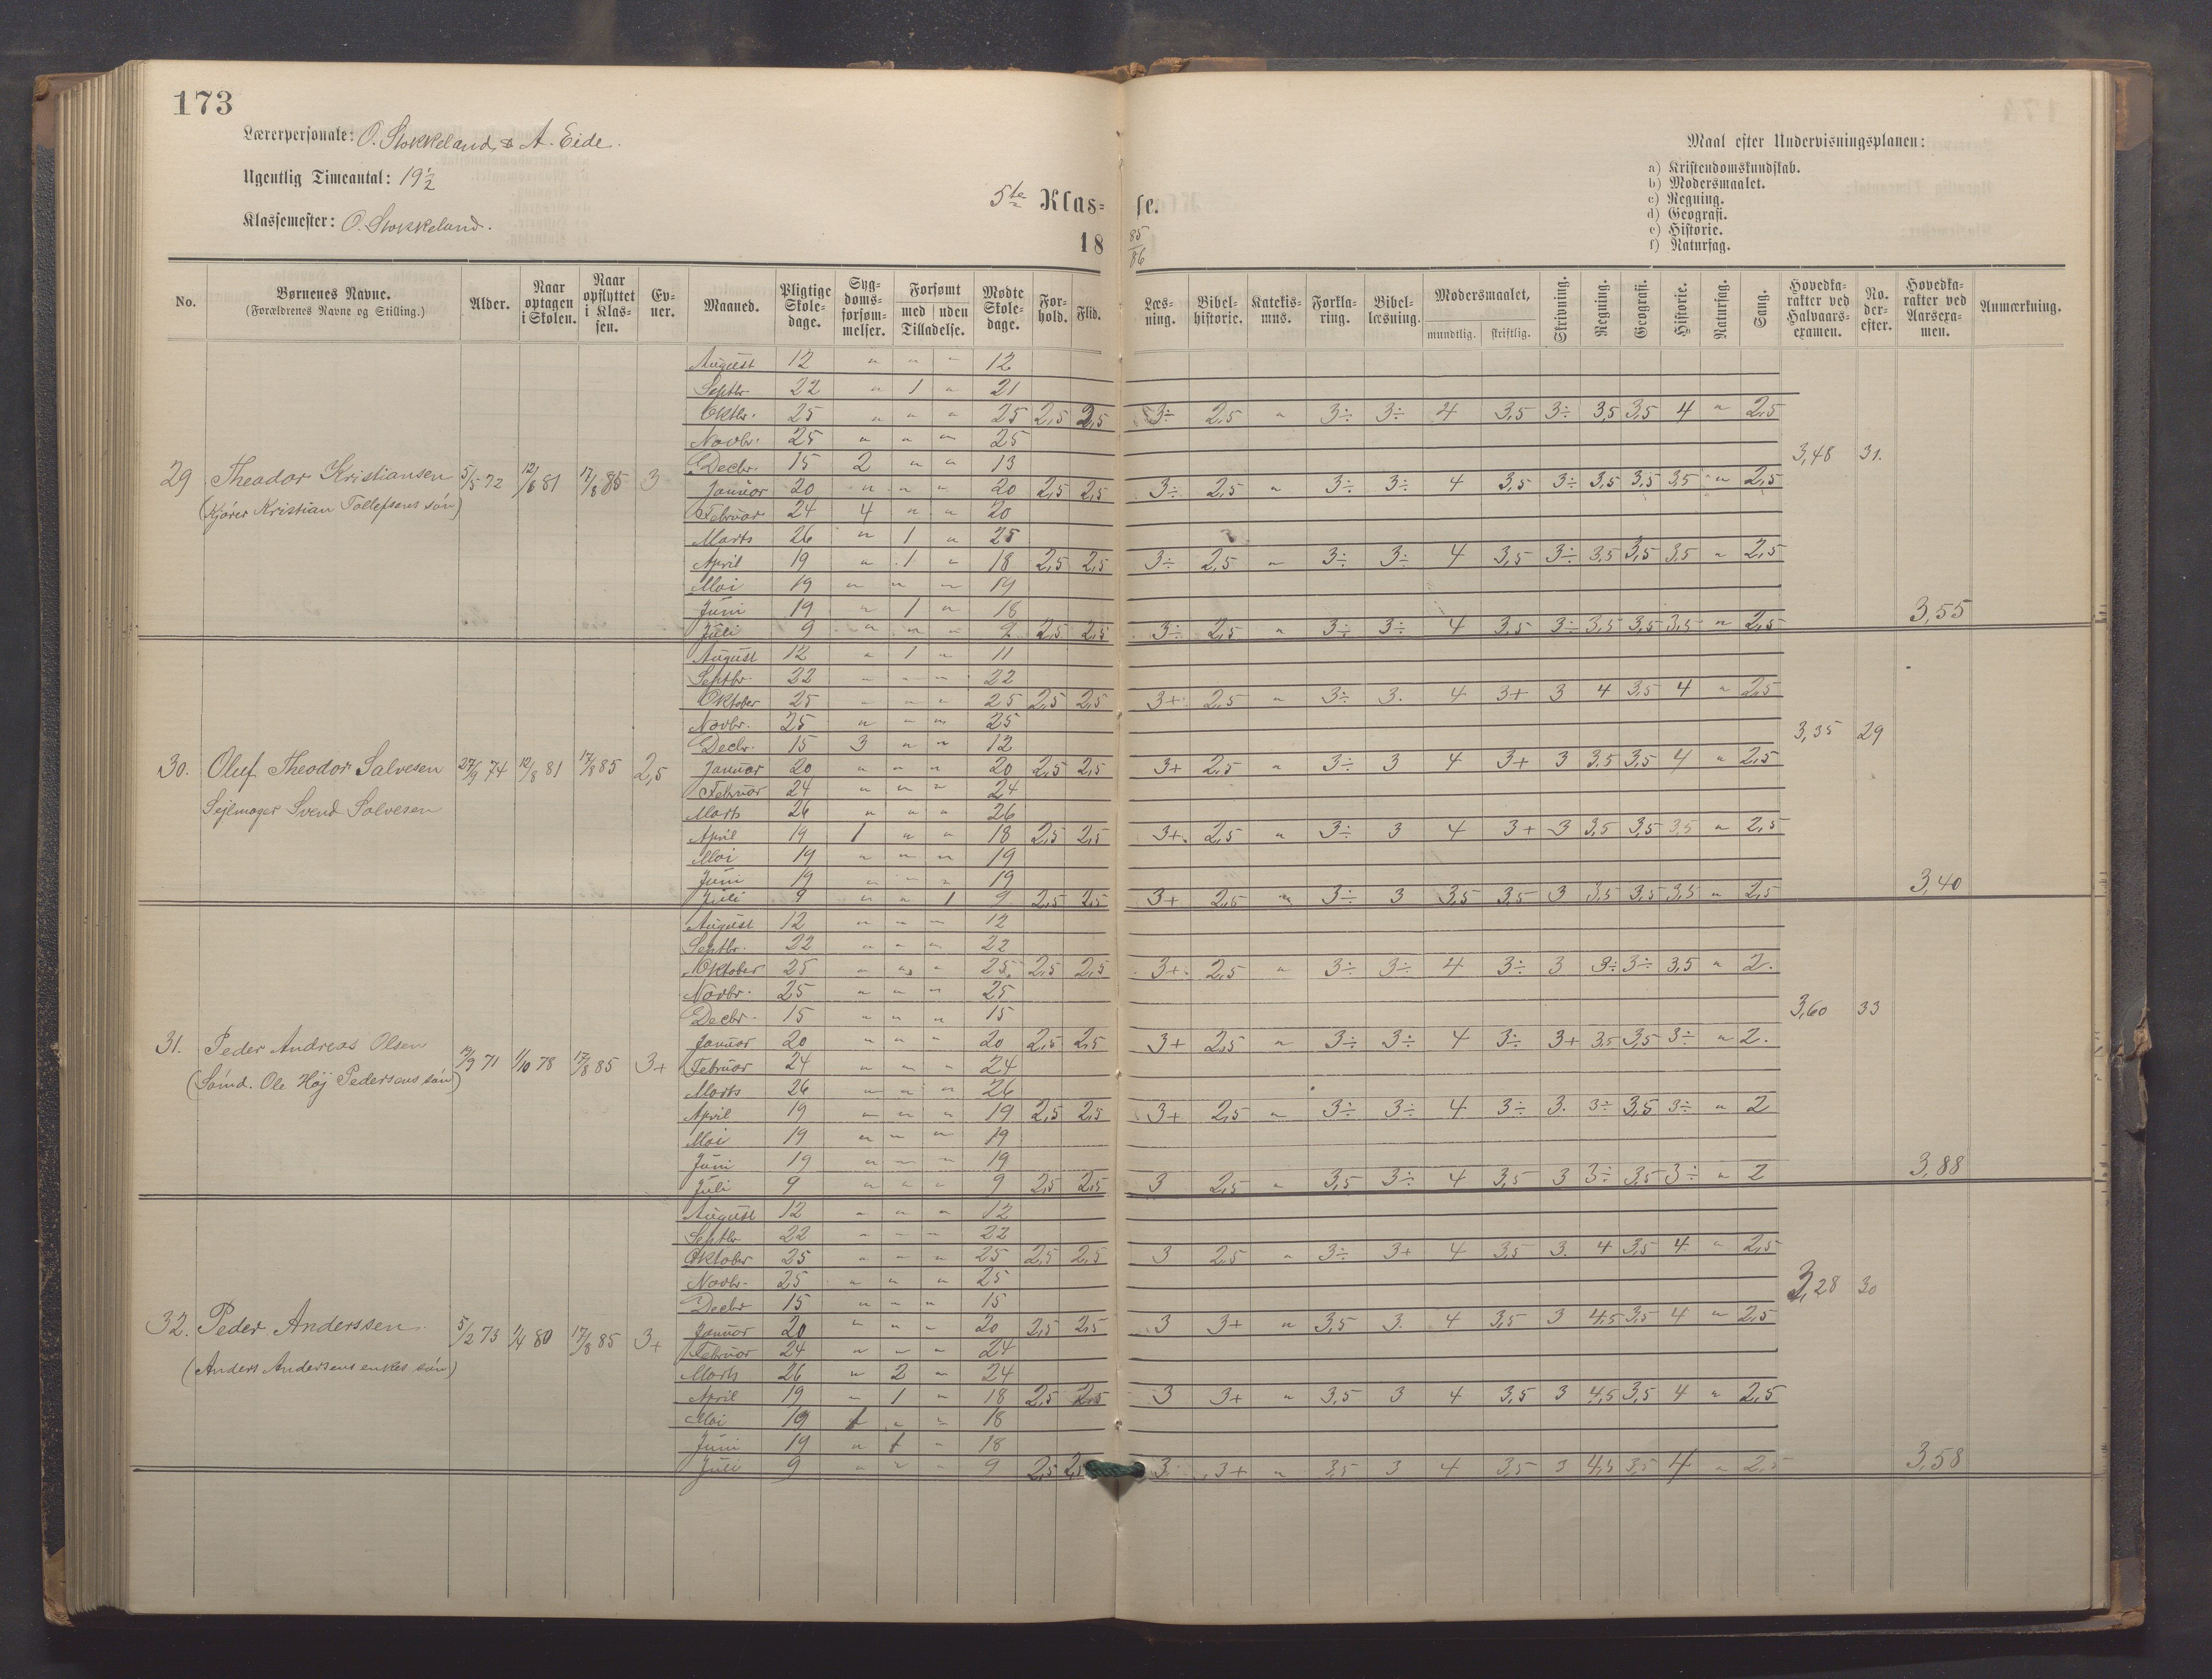 173
Lærerpersonale: O. Stokkeland & A. Eide.
Ugentlig Timeantal: 19 1/2
Klassemester: O. Stokkeland.
5te Klas= se.
18 85/86
Maal efter Undervisningsplanen:
a) Kristendomskundskab.
b) Modersmaalet.
c) Regning.
d) Geografi.
e) Historie.
f) Naturfag.
No. Børnenes Navne. (Forældrenes Navne og Stilling.) Alder. Naar optagen i Skolen. Naar opflyttet i Klassen. Evner. Maaned. Pligtige Skoledage. Sygdomsforsømmelser. Forsømt med uden Tilladelse. Mødte Skoledage. Forhold. Flid. Læsning. Bibelhistorie. Katekismus. Forklaring. Bibellæsning. Modersmaalet, mundtlig. skriftlig. Skrivning. Regning. Geografi. Historie. Naturfag. Sang. Hovedkarakter ved Halvaarsexamen. No. derefter. Hovedkarakter ved Aarsexamen. Anmærkning.
29 Theodor Kristiansen 5/5 72 12/8 81 17/8 85 3
(Kjører Kristian Tollefsens søn)
August 12 " " " 12
Septbr. 22 " 1 " 21
Oktbr. 25 " " " 25 2,5 2,5 3÷ 2,5 " 3÷ 3÷ 4 3,5 3÷ 3,5 3,5 4 " 2,5
Novbr. 25 " " " 25
Decbr. 15 2 " " 13 3,48 31.
Januar 20 " " " 20 2,5 2,5 3÷ 2,5 " 3÷ 3÷ 4 3,5 3÷ 3,5 3,5 3,5 " 2,5
Februar 24 4 " " 20
Marts 26 " 1 " 25
April 19 " 1 " 18 2,5 2,5 3÷ 2,5 " 3÷ 3÷ 4 3,5 3÷ 3,5 3,5 3,5 " 2,5
Mai 19 " " " 19
Juni 19 " 1 " 18 3,55
Juli 9 " " " 9 2,5 2,5 3÷ 2,5 " 3÷ 3÷ 4 3,5 3÷ 3,5 3,5 3,5 " 2,5
30. Oluf Theodor Salvesen 27/9 74 12/8 81 17/8 85 2,5
Sejlmager Svend Salvesen
August 12 " 1 " 11
Septbr. 22 " " " 22
Oktober 25 " " " 25 2,5 2,5 3+ 2,5 " 3÷ 3. 4 3+ 3 4 3,5 4 " 2,5
Novbr. 25 " " " 25
Decbr. 15 3 " " 12 3,35 29
Januar 20 " " " 20 2,5 2,5 3+ 2,5 " 3÷ 3 4 3+ 3 3,5 3,5 4 " 2,5
Februar 24 " " " 24
Marts 26 " " " 26
April 19 1 " " 18 2,5 2,5 3+. 2,5 " 3÷ 3 4 3+ 3 3,5 3,5 3,5 " 2,5
Mai 19 " " " 19
Juni 19 " " " 19 3,40
Juli 9 " " 1 9 2,5 2,5 3+ 2,5 " 3÷ 3 3,5 3,5 3 3,5 3,5 3,5 " 2,5
31. Peder Andreas Olsen 19/9 71 1/10 78 17/8 85 3+
(Sømd. Ole Høj Pedersens søn)
August 12 " " " 12
Septbr. 22 " " " 22
Oktober 25 " " " 25. 2,5 2,5 3+. 2,5 " 3÷ 3÷ 4 3÷ 3 3÷ 3÷ 3,5 " 2.
Novbr. 25 " " " 25
Decbr. 15 " " " 15 3,60 33
Januar 20 " " " 20 2,5 2,5 3+ 2,5 " 3÷ 3÷ 4 3÷ 3+ 3,5 3,5 3÷ " 2.
Februar 24 " " " 24
Marts 26 " " " 26
April 19 " " " 19 2,5 2,5 3+ 2,5 " 3÷ 3÷ 4 3÷ 3. 3÷ 3,5 3÷ " 2
Mai 19 " " " 19
Juni 19 " " " 19 3,88
Juli 9 " " " 9 2,5 2,5 3 2,5 " 3,5 3÷ 4 3,5 3 3÷ 3,5 3÷ " 2
32. Peder Anderssen. 5/2 73 1/4 80 17/8 85 3+
(Anders Andersens enkes søn)
August 12 " " " 12
Septbr 22 " " " 22
Oktober 25 " " " 25 2,5 2,5 3 2,5 " 3÷ 3+ 4 3,5 3. 4 3,5 4 " 2,5
Novbr. 25 " " " 25
Decbr 15 " " " 15 3,28 30
Januar 20 " " " 20 2,5 2,5 3 3+ " 3,5 3. 4 3,5 3 4,5 3,5 4 " 2,5
Februar 24 " " " 24
Marts 26 " 2 " 24
April 19 " 1 " 18 2,5 2,5 3 3+ " 3,5 3 4 3,5 3 4,5 3,5 4 " 2,5
Mai 19 1 " " 18
Juni 19 " 1 " 18 3,58
Juli 9 " " " 9 2,5 2,5 3 3+ " 3,5 3 4 3,5 3 4,5 3,5 4 " 2,5